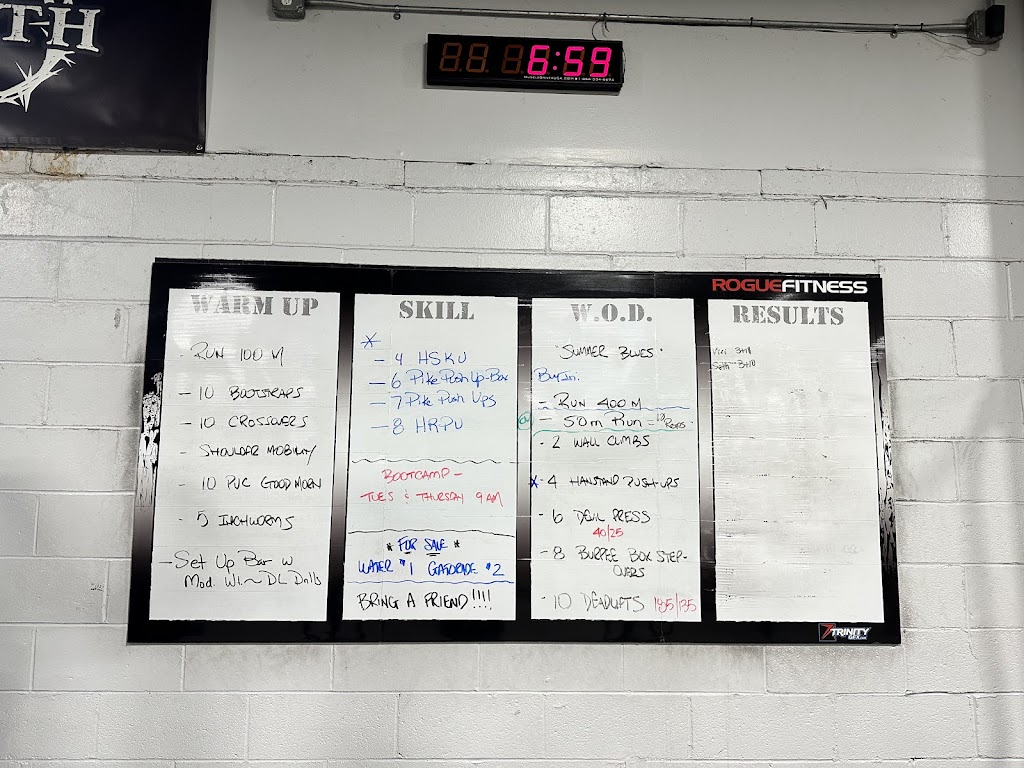 TH
6:59
ROGUEFITNESS
WARM UP
- RUN 100 M
- 10 BOOTSTRAPS
- 10 CROSSOVERS
- SHOULDER MOBILITY
- 10 PVC GOODMORN
- 5 INCHWORMS
- Set Up Bar w
Mod. Wt. ~ DL Drills
SKILL
- 4 HSKU
- 6 Pike Push Up-Box
- 7 Pike Push Ups
- 8 HRPU
BOOTCAMP -
TUES & THURSDAY 9 AM
* FOR SALE *
WATER $1 GATORADE $2
BRING A FRIEND!!!!
W.O.D.
"SUMMER BLUES"
Buy In:
- RUN 400 M
- 50m Run =
- 2 WALL CLIMBS
* - 4 HANSTAND PUSH-UPS
- 6 DEVIL PRESS
40/25
- 8 BURPEE BOX STEP-
OVERS
- 10 DEADLIFTS 195/135
RESULTS
TRINITY